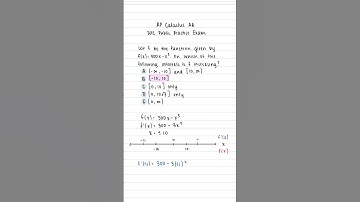 AP Calculus AB
2012 Public Practice Exam
Let f be the function given by
f(x) = 300x - x³. On which of the
following intervals is f increasing?
A (-∞, -10] and [10, ∞)
B [-10, 10]
C [0, 10] only
D [0, 10√3] only
E [0, ∞)
f(x) = 300x - x³
f'(x) = 300 - 3x²
x = ±10
f'(x)
x
-10 10
f(x)
f'(11) = 300 - 3(11)²